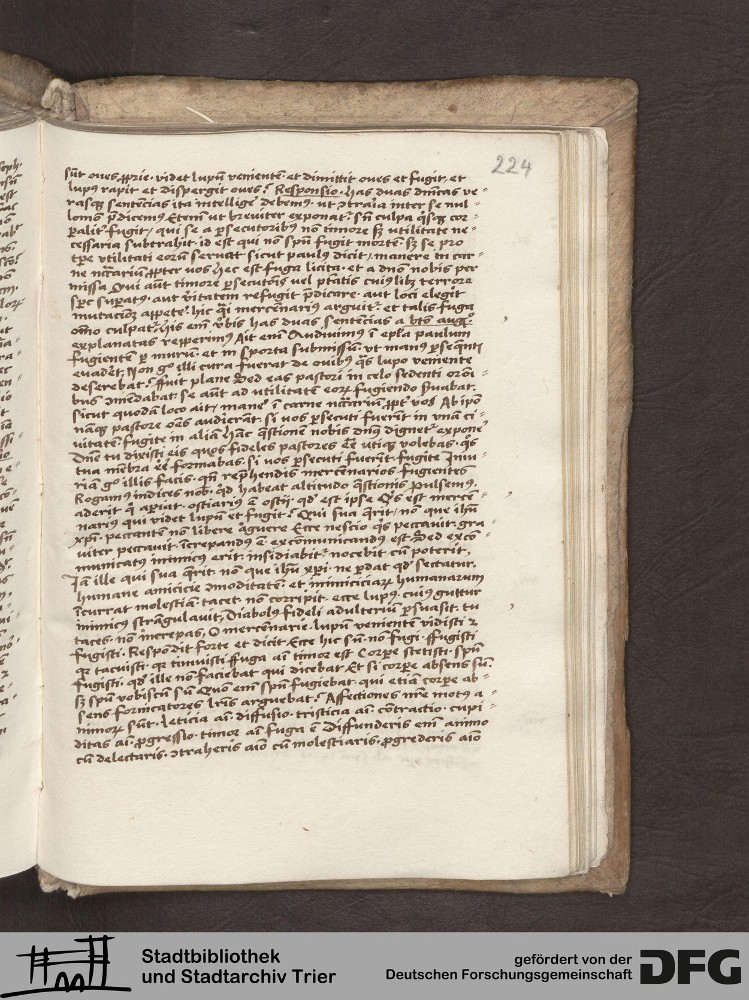 224
sūt oues ꝓprie· videt lupū venientē· et dimittit oues et fugit· et
lupꝰ rapit et dispergit oues? Responsio· has duas dn̄icas ve-
rasqꝫ sentēcias ita intellige debemꝰ· ut ↄtraria inter se nul-
lomō p̄dicemꝰ Etenī ut breuiter exponat· sn̄ culpa q̄sqꝫ cor-
ꝑalit̄ fugit, qui se a ꝑsecutoribꝰ nō timore sꝫ utilitate ne-
cessaria subtrahit· id est qui nō spū fugit mortē· sꝫ se pro
tꝑe vtilitati eorū seruat· sicut paulꝰ dicit, manere in car-
ne nc̄cariū ꝓpter vos hec est fuga licita· et a dn̄o nobis per
missa Qui aūt timore ꝑsecutōis vel ptātis cuiꝰlibꝫ terrore
mutacioꝫ appete? hic qi mercenariꝰ arguit· et talis fuga
oīno culpat hijs em̄ v̄bis has duas sentēcias a bt̄o augꝰ·
explanatas repperimꝰ Ait em̄ Audiuimꝰ ī ep̄la paulum
fugientē ꝑ murū· et in sporta submissū· vt manꝰ ꝑseqn̄tiū
euad̄et· Non gͦ illi cura fuerat de ouibꝰ qͣs lupo veniente
deserebat? ffuit plane Sed eas pastori in celo sedenti oroī-
bus ↄmēdabat· se aūt ad utilitatē eoꝝ fugiendo s̄uabat·
sicut quodā loco ait, mane ī carne nc̄cariū ꝓpt̄ vos Ab ipō
nāqꝫ pastore oēs audierāt· si vos ꝑsecuti fuerīt in vnā ci-
uitatē fugite in aliā hāc q̄stionē nobis dn̄s dignet exponē
Dn̄e tu dixisti eis quos fideles pastores eē utiqꝫ volebas· qͦs
tua mēbra eē formabas· si vos ꝑsecuti fuerīt· fugite Iniu-
riā gͦ illis facis· qn̄ rep̄hendis mercēnarios fugientes
Rogamꝰ indices nob̄· qd habeat altitudo q̄stionis pulsemꝰ·
aderit qͥ aꝑiat· ostiariꝰ ē ostij· qd̄ est ipse Qͥs est mercē-
nariꝰ qui videt lupū et fugit? Qui sua q̄rit, nō que ihū
xp̄i· peccantē nō libere ar̄guere Ecce nescio qͥs peccauit· gra
uiter peccauit· īcrepandꝰ ē· excōmunicandꝰ est· Sed excō-
municatꝰ inimicꝰ erit· insidiabit· nocebit cū poterit,
Iā ille qui sua q̄rit· nō que ihū xp̄i· ne ꝑdat qd̄ sectatur·
humane amicicie ↄmoditatē· et inimiciciaꝝ humanarum
īcurrat molestiā tacet· nō corripit· ecce lupꝰ· cuiꝰ guttur
inimicꝰ strāgulauit, Diabolꝰ fideli adulteriū ꝑsuasit· tu
taces· nō īncrepas, O mercēnarie· lupū venientē vidisti ⁊
fugisti· Respondit forte et dicit Ecce hic sū· nō fugi· ffugisti
qꝛ tacuisti· qꝛ timuisti ffuga aī timor est Corꝑe stetisti· spū
fugisti· qd̄ ille nō faciebat qui dicebat Et si corꝑe absens sū·
sꝫ spū vobiscū sū Qūo em̄ spū fugiebat· qui etiā corꝑe ab-
sens fornicatores lr̄is arguebat? Affectiones nr̄e motꝰ a-
nimoꝝ sūt· leticia aī· diffusio· tristicia aī· cōtractio· cupi-
ditas aī· ꝓgressio· timor aī· fuga ē Diffunderis em̄ animo
cū delectaris· ↄtraheris aīo cū molestiaris· ꝓgrederis aīo
Stadtbibliothek
und Stadtarchiv Trier
gefördert von der
Deutschen Forschungsgemeinschaft
DFG